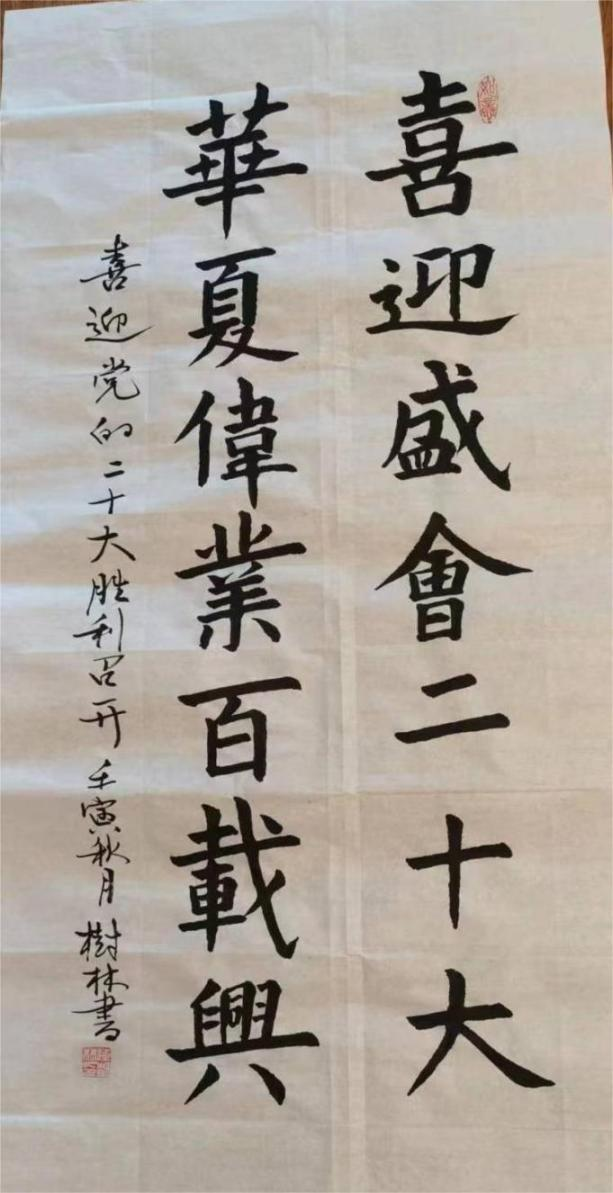 喜迎盛會二十大
華夏偉業百載興
喜迎党的二十大胜利召开 壬寅秋月 樹林書